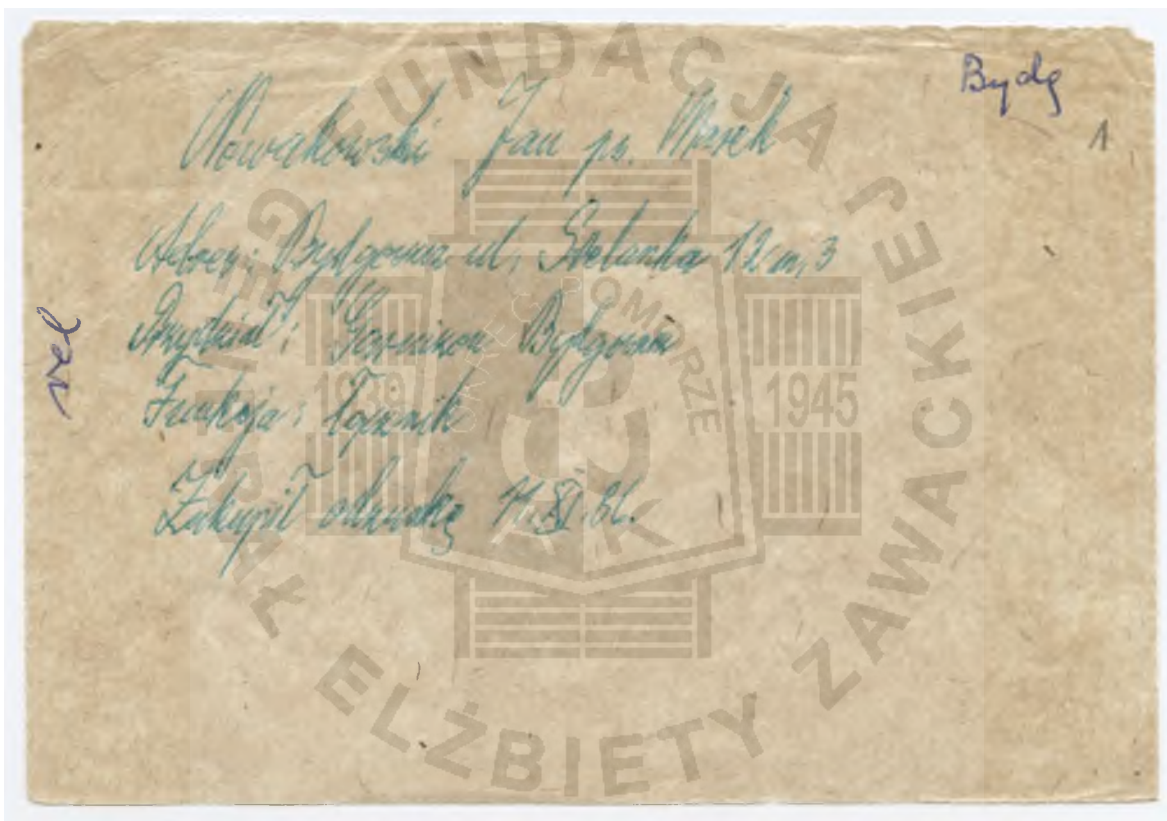 Bydg
1
Nowakowski Jan ps. Marek
Adres: Bydgoszcz ul. Sielanka 12 m, 3
Przydział: Garnizon Bydgoszcz
Funkcja: Łącznik
Zakupił odznakę 11.XI.86.
vel
FUNDACJA
GENERAŁ ELŻBIETY ZAWACKIEJ
POMORZE
1939
1945
AK